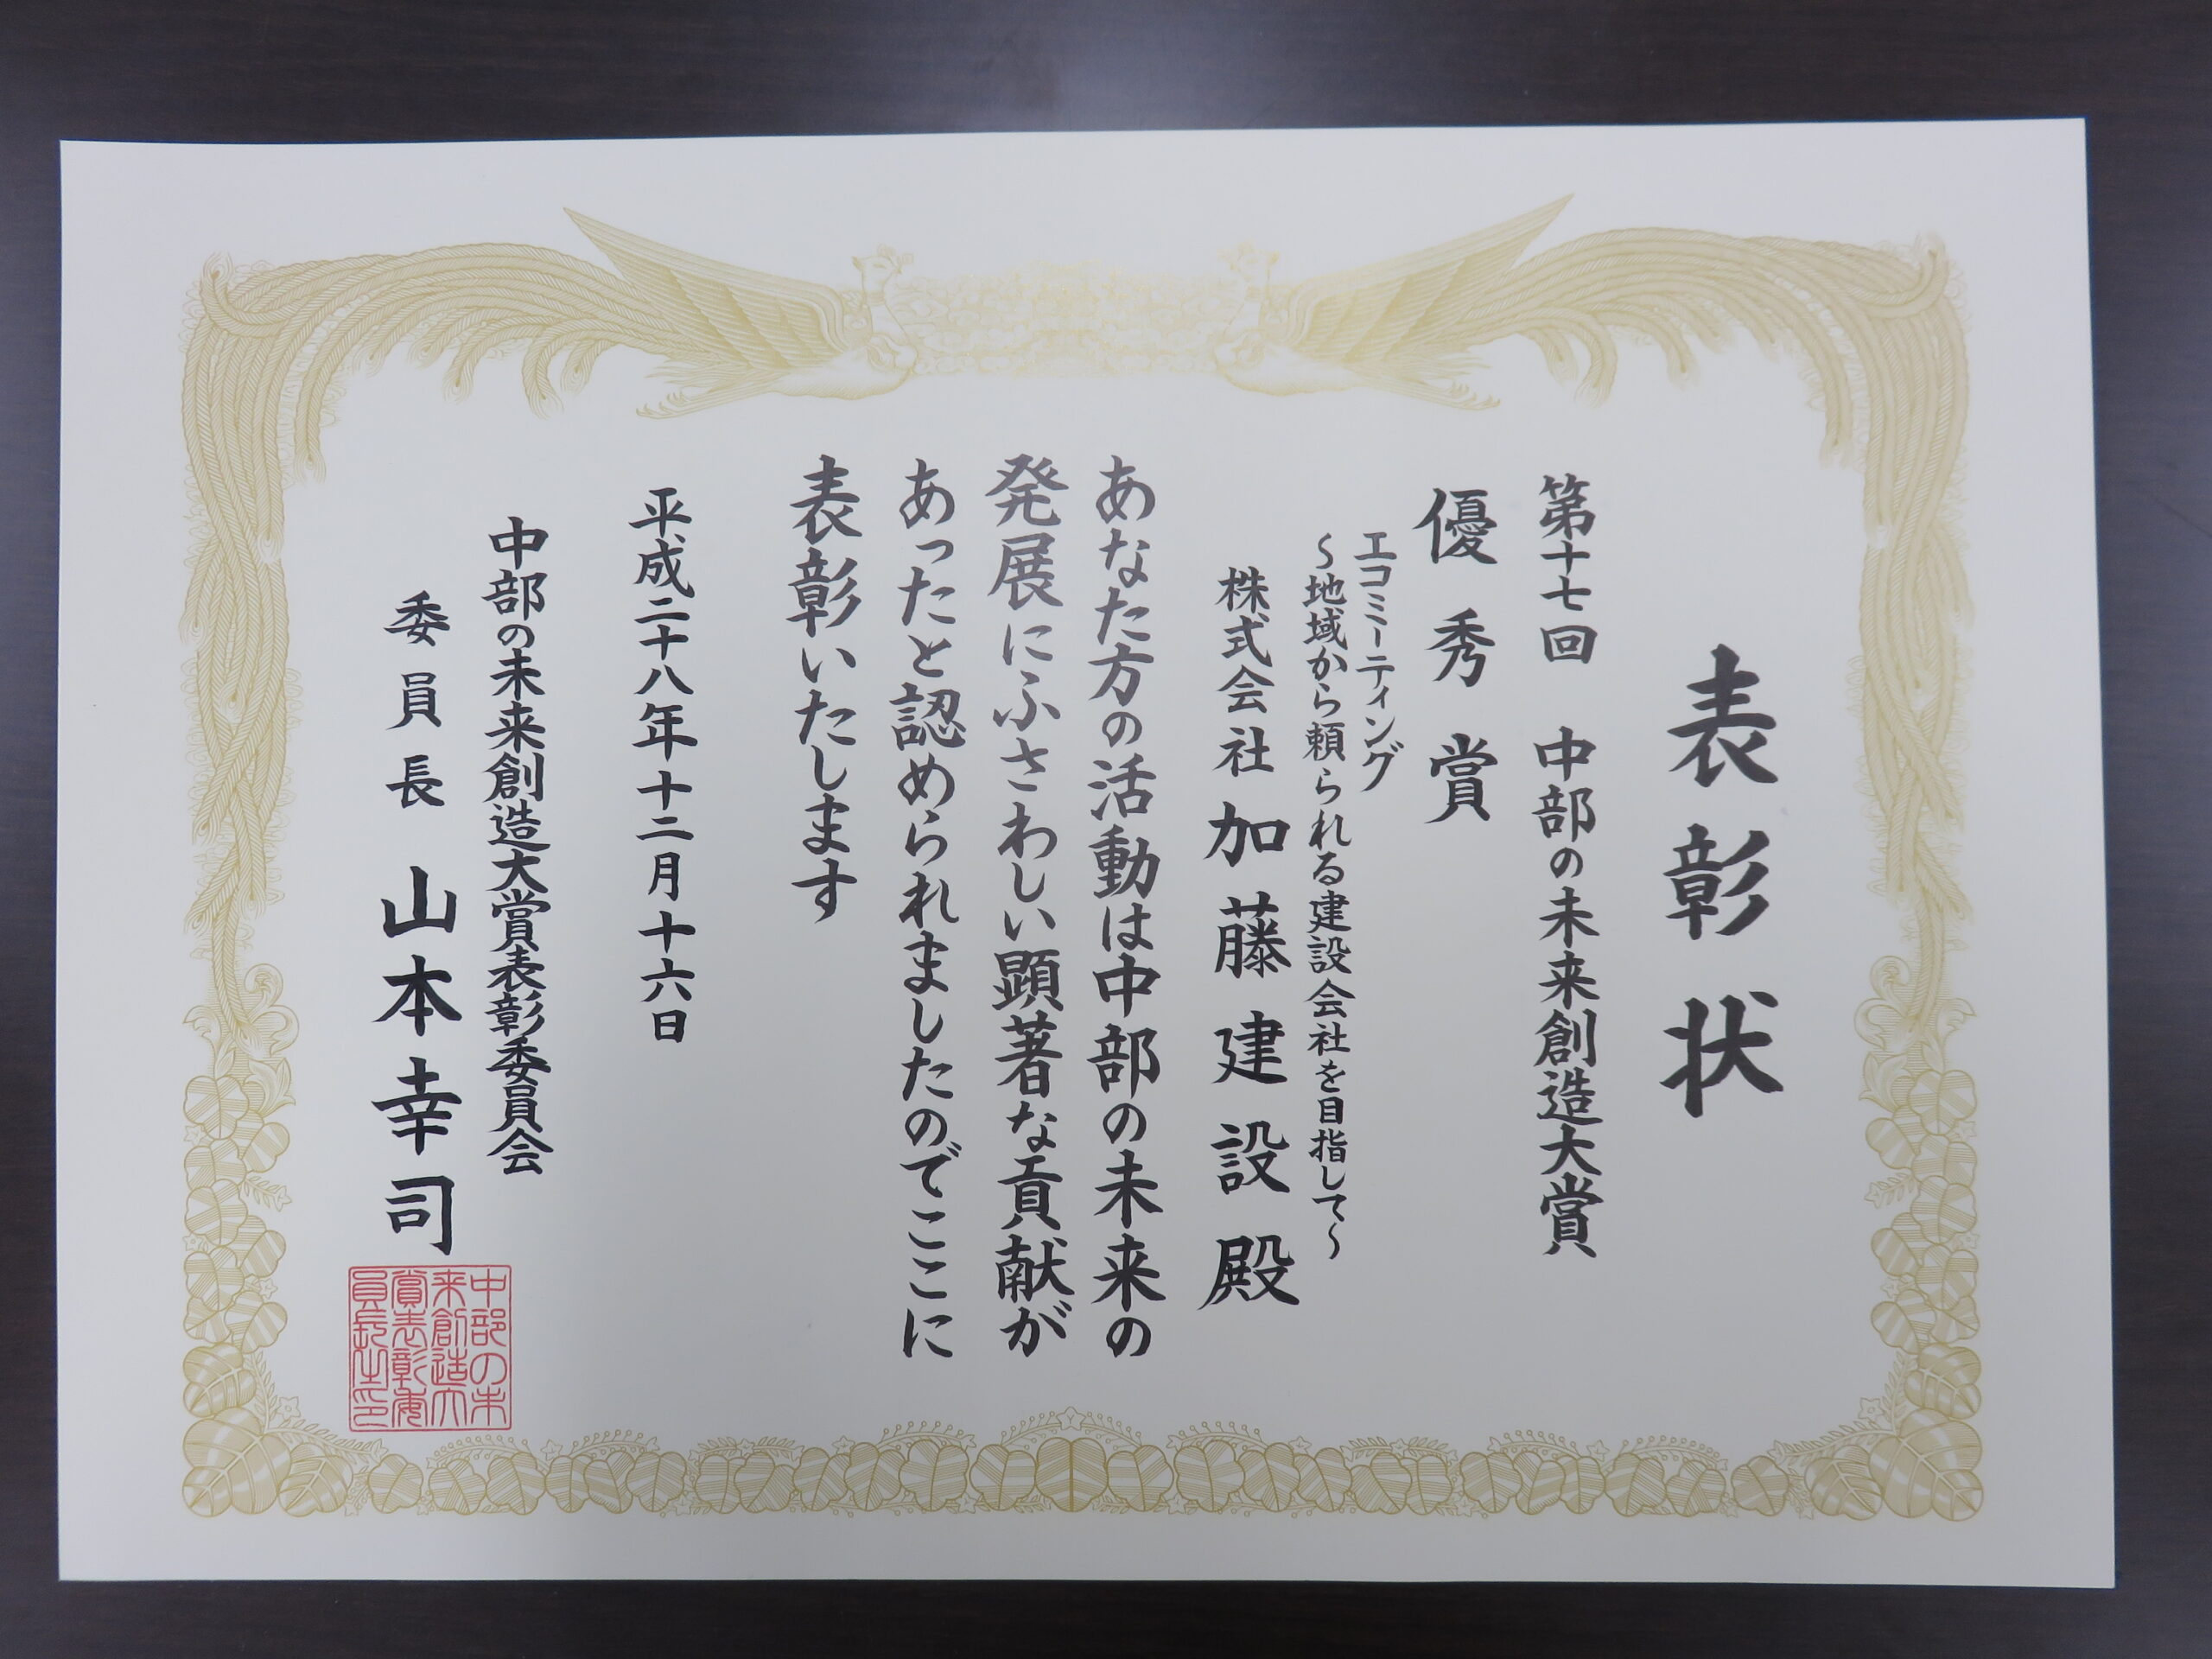 表彰状
第十七回　中部の未来創造大賞
優秀賞
エコミーティング
～地域から頼られる建設会社を目指して～
株式会社加藤建設殿
あなた方の活動は中部の未来の
発展にふさわしい顕著な貢献が
あったと認められましたのでここに
表彰いたします
平成二十八年十二月十六日
中部の未来創造大賞表彰委員会
委員長　山本幸司
中部の未
来創造大
賞表彰委
員長之印